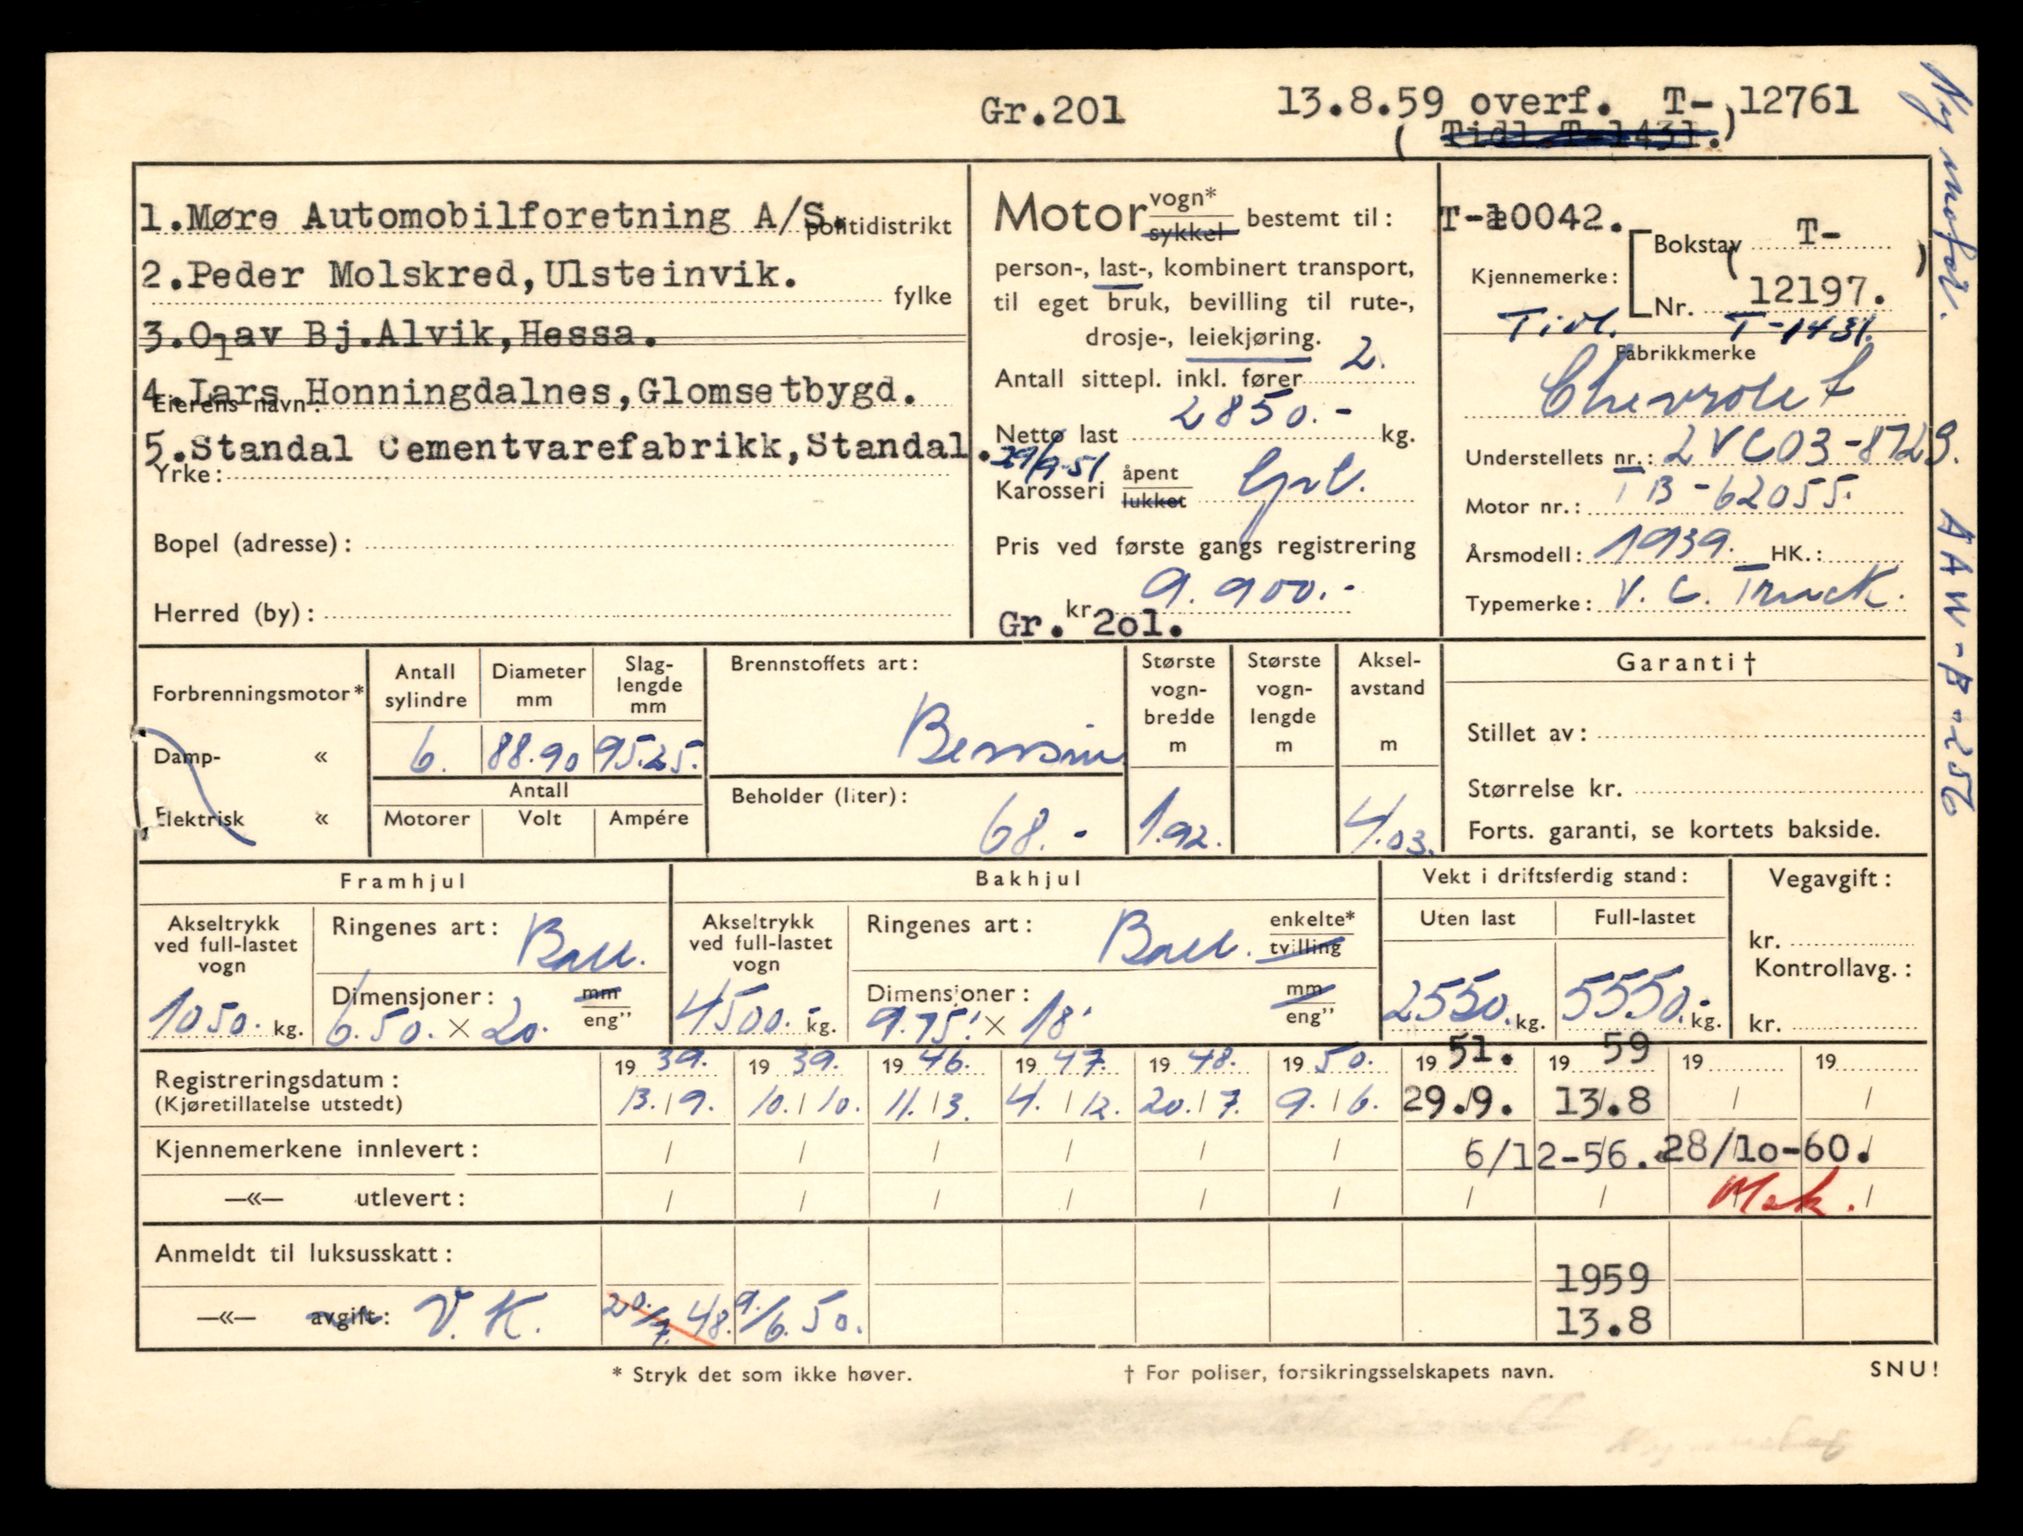 Gr.201 13.8.59 overf. T- 12761
( Tidl.T-1431.)
1.Møre Automobilforetning A/S. politidistrikt
2.Peder Molskred,Ulsteinvik.
fylke
3.Olav Bj.Alvik,Hessa.
4.Lars Honningdalnes,Glomsetbygd.
Eierens navn:
5.Standal Cementvarefabrikk,Standal.
Yrke:
Bopel (adresse):
Herred (by):
Motor vogn* / sykkel bestemt til:
person-, last-, kombinert transport,
til eget bruk, bevilling til rute-,
drosje-, leiekjøring.
Antall sittepl. inkl. fører 2.
Netto last 2850.- kg.
29/9-51
Karosseri åpent / lukket
Pris ved første gangs registrering
kr. 9.900.-
Gr. 2o1.
T-10042.
Kjennemerke: Bokstav T-
Nr. ( 12197. )
Tidl. T-1431.
Fabrikkmerke
Chevrolet
Understellets nr.: 2VC03-8729.
Motor nr.: TB-62055.
Årsmodell: 1939. HK.:
Typemerke: V.C. Truck.
Ny motor. AAW-B-256
Forbrenningsmotor*
Damp- «
Elektrisk «
Antall sylindre 6.
Diameter mm 88.90
Slag-lengde mm 95.25.
Antall
Motorer Volt Ampére
Brennstoffets art: Bensin
Beholder (liter): 68.-
Største vogn-bredde m 1.92.
Største vogn-lengde m
Aksel-avstand m 4.03.
Garanti†
Stillet av:
Størrelse kr.
Forts. garanti, se kortets bakside.
Framhjul
Akseltrykk ved full-lastet vogn 1050.- kg.
Ringenes art: Ball.
Dimensjoner: mm / eng" 6.50. × 20.
Bakhjul
Akseltrykk ved full-lastet vogn 4500.- kg.
Ringenes art: Ball. enkelte* / tvilling
Dimensjoner: mm / eng" 9.75. × 18.
Vekt i driftsferdig stand:
Uten last 2550. kg.
Full-lastet 5550.- kg.
Vegavgift:
kr.
Kontrollavg.:
kr.
19 39. 19 39. 19 46. 19 47. 19 48. 19 50. 19 51. 19 59 19 19
Registreringsdatum:
(Kjøretillatelse utstedt) 13./9. 10./10. 11./3. 4./12. 20./7. 9./6. 29./9. 13/.8 / /
Kjennemerkene innlevert: / / / / / / 6/12-56. 28/1o-60. /
—«— utlevert: / / / / / / / / Mek. /
Anmeldt til luksusskatt: 1959
—«— avgift: V.K. 20./7. 48. 9./6. 50. 13.8
* Stryk det som ikke høver. † For poliser, forsikringsselskapets navn. SNU!